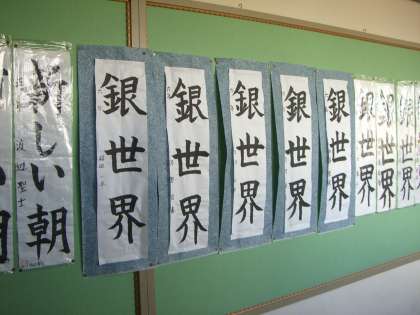 新しい朝
銀世界
銀世界
銀世界
銀世界
銀世界
銀世界
銀世界
銀世界